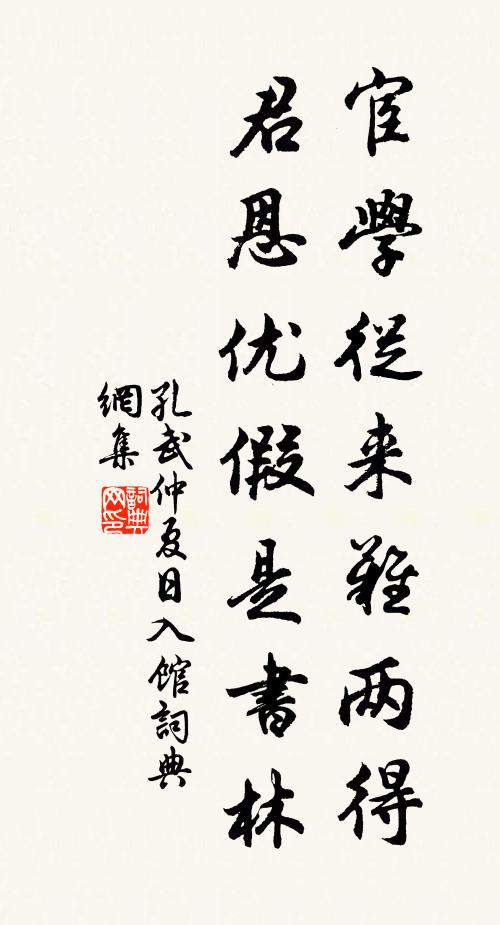 宦學從来難两得
君恩优假是書林
孔武仲夏日入館詞典
網集
詞典
网印